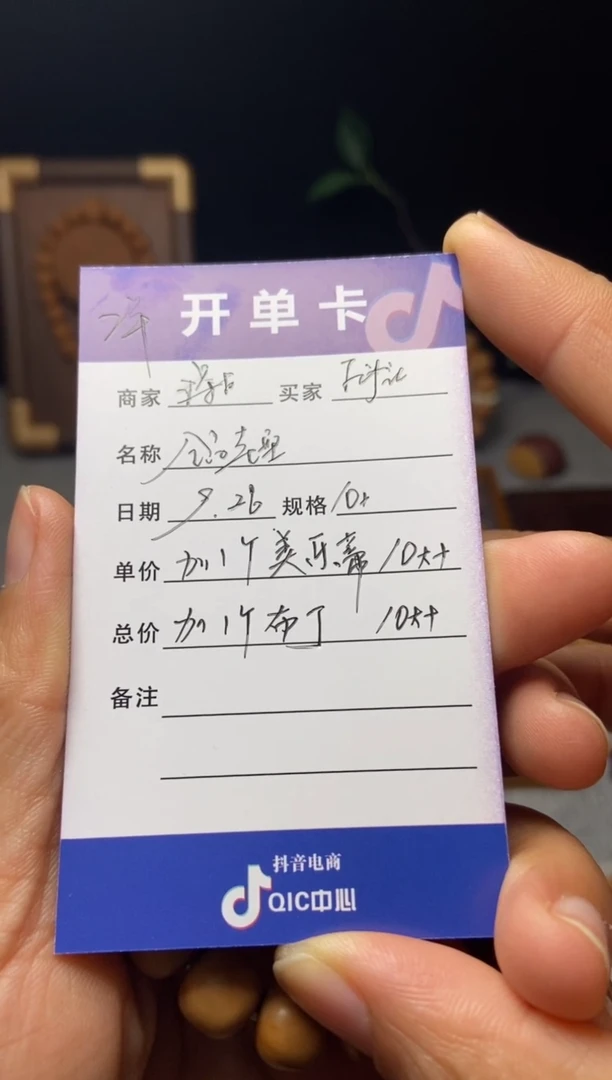 开单卡
商家 买家
名称
日期 9.26 规格 10+
单价 加1个美乐蒂 10大+
总价 加1个布丁 10大+
备注
抖音电商
QIC中心